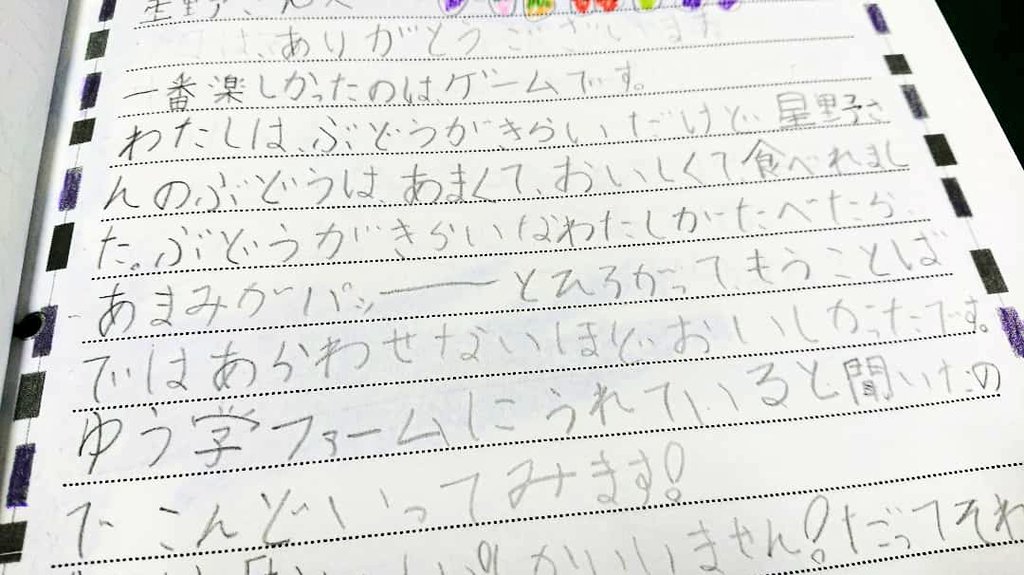 星野さん
ありがとうございます
一番楽しかったのは、ゲームです。
わたしは、ぶどうがきらいだけど、星野さ
んのぶどうは、あまくて、おいしくて食べれまし
た。ぶどうがきらいなわたしがたべたら、
あまみがパッーーとひろがって、もうことば
ではあらわせないほどおいしかったです。
ゆう学ファームにうれていると聞いたの
で こんどいってみます!
ません!だってそれ